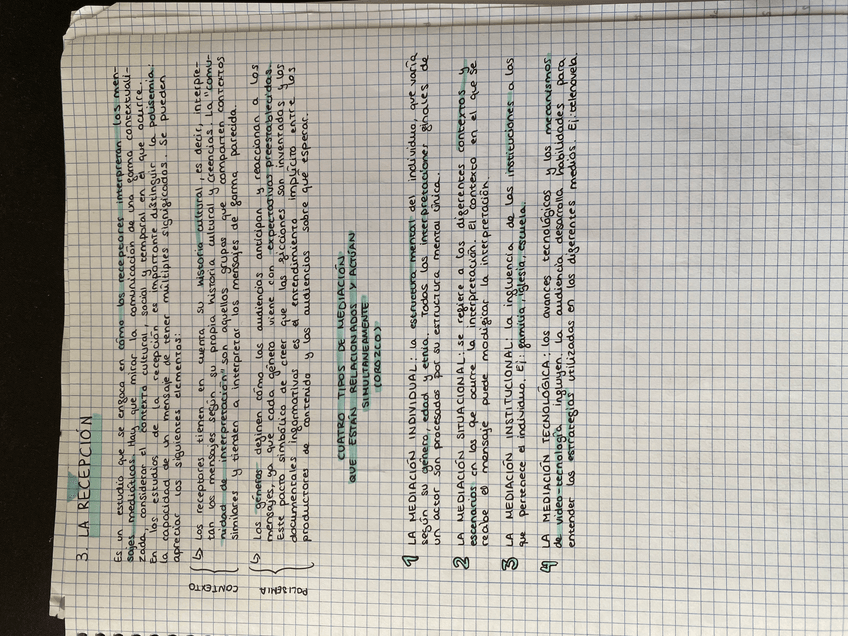 3. LA RECEPCIÓN
Es un estudio que se enfoca en cómo los receptores interpretan los men-
sajes mediáticos. Hay que mirar la comunicación de una forma contextuali-
zada, considerar el contexto cultural, social y temporal en el que ocurre.
En los estudios de la recepción es importante distinguir la polisemia:
la capacidad de un mensaje de tener múltiples significados. Se pueden
apreciar los siguientes elementos:
CONTEXTO
↳ Los receptores tienen en cuenta su historia cultural, es decir, interpre-
tan los mensajes según su propia historia cultural y creencias. La "comu-
nidad de interpretación" son aquellos grupos que comparten contextos
similares y tienden a interpretar los mensajes de forma parecida.
POLISEMIA
↳ Los géneros definen cómo las audiencias anticipan y reaccionan a los
mensajes, ya que cada género viene con expectativas preestablecidas.
Este pacto simbólico de creer que las ficciones son inventadas y los
documentales informativos es el entendimiento implícito entre los
productores de contenido y las audiencias sobre qué esperar.
CUATRO TIPOS DE MEDIACIÓN
QUE ESTÁN RELACIONADOS Y ACTÚAN
SIMULTANEAMENTE
(OROZCO)
1 LA MEDIACIÓN INDIVIDUAL: la estructura mental del individuo, que varía
según su género, edad y etnia. Todas las interpretaciones finales de
un actor son procesados por su estructura mental única.
2 LA MEDIACIÓN SITUACIONAL: se refiere a los diferentes contextos y
escenarios en los que ocurre la interpretación. El contexto en el que se
recibe el mensaje puede modificar la interpretación.
3 LA MEDIACIÓN INSTITUCIONAL: la influencia de las instituciones a las
que pertenece el individuo. Ej: familia, iglesia, escuela.
4 LA MEDIACIÓN TECNOLÓGICA: los avances tecnológicos y los mecanismos
de video-tecnología influyen. la audiencia desarrolla habilidades para
entender las estrategias utilizadas en los diferentes medios. Ej: telenovela.